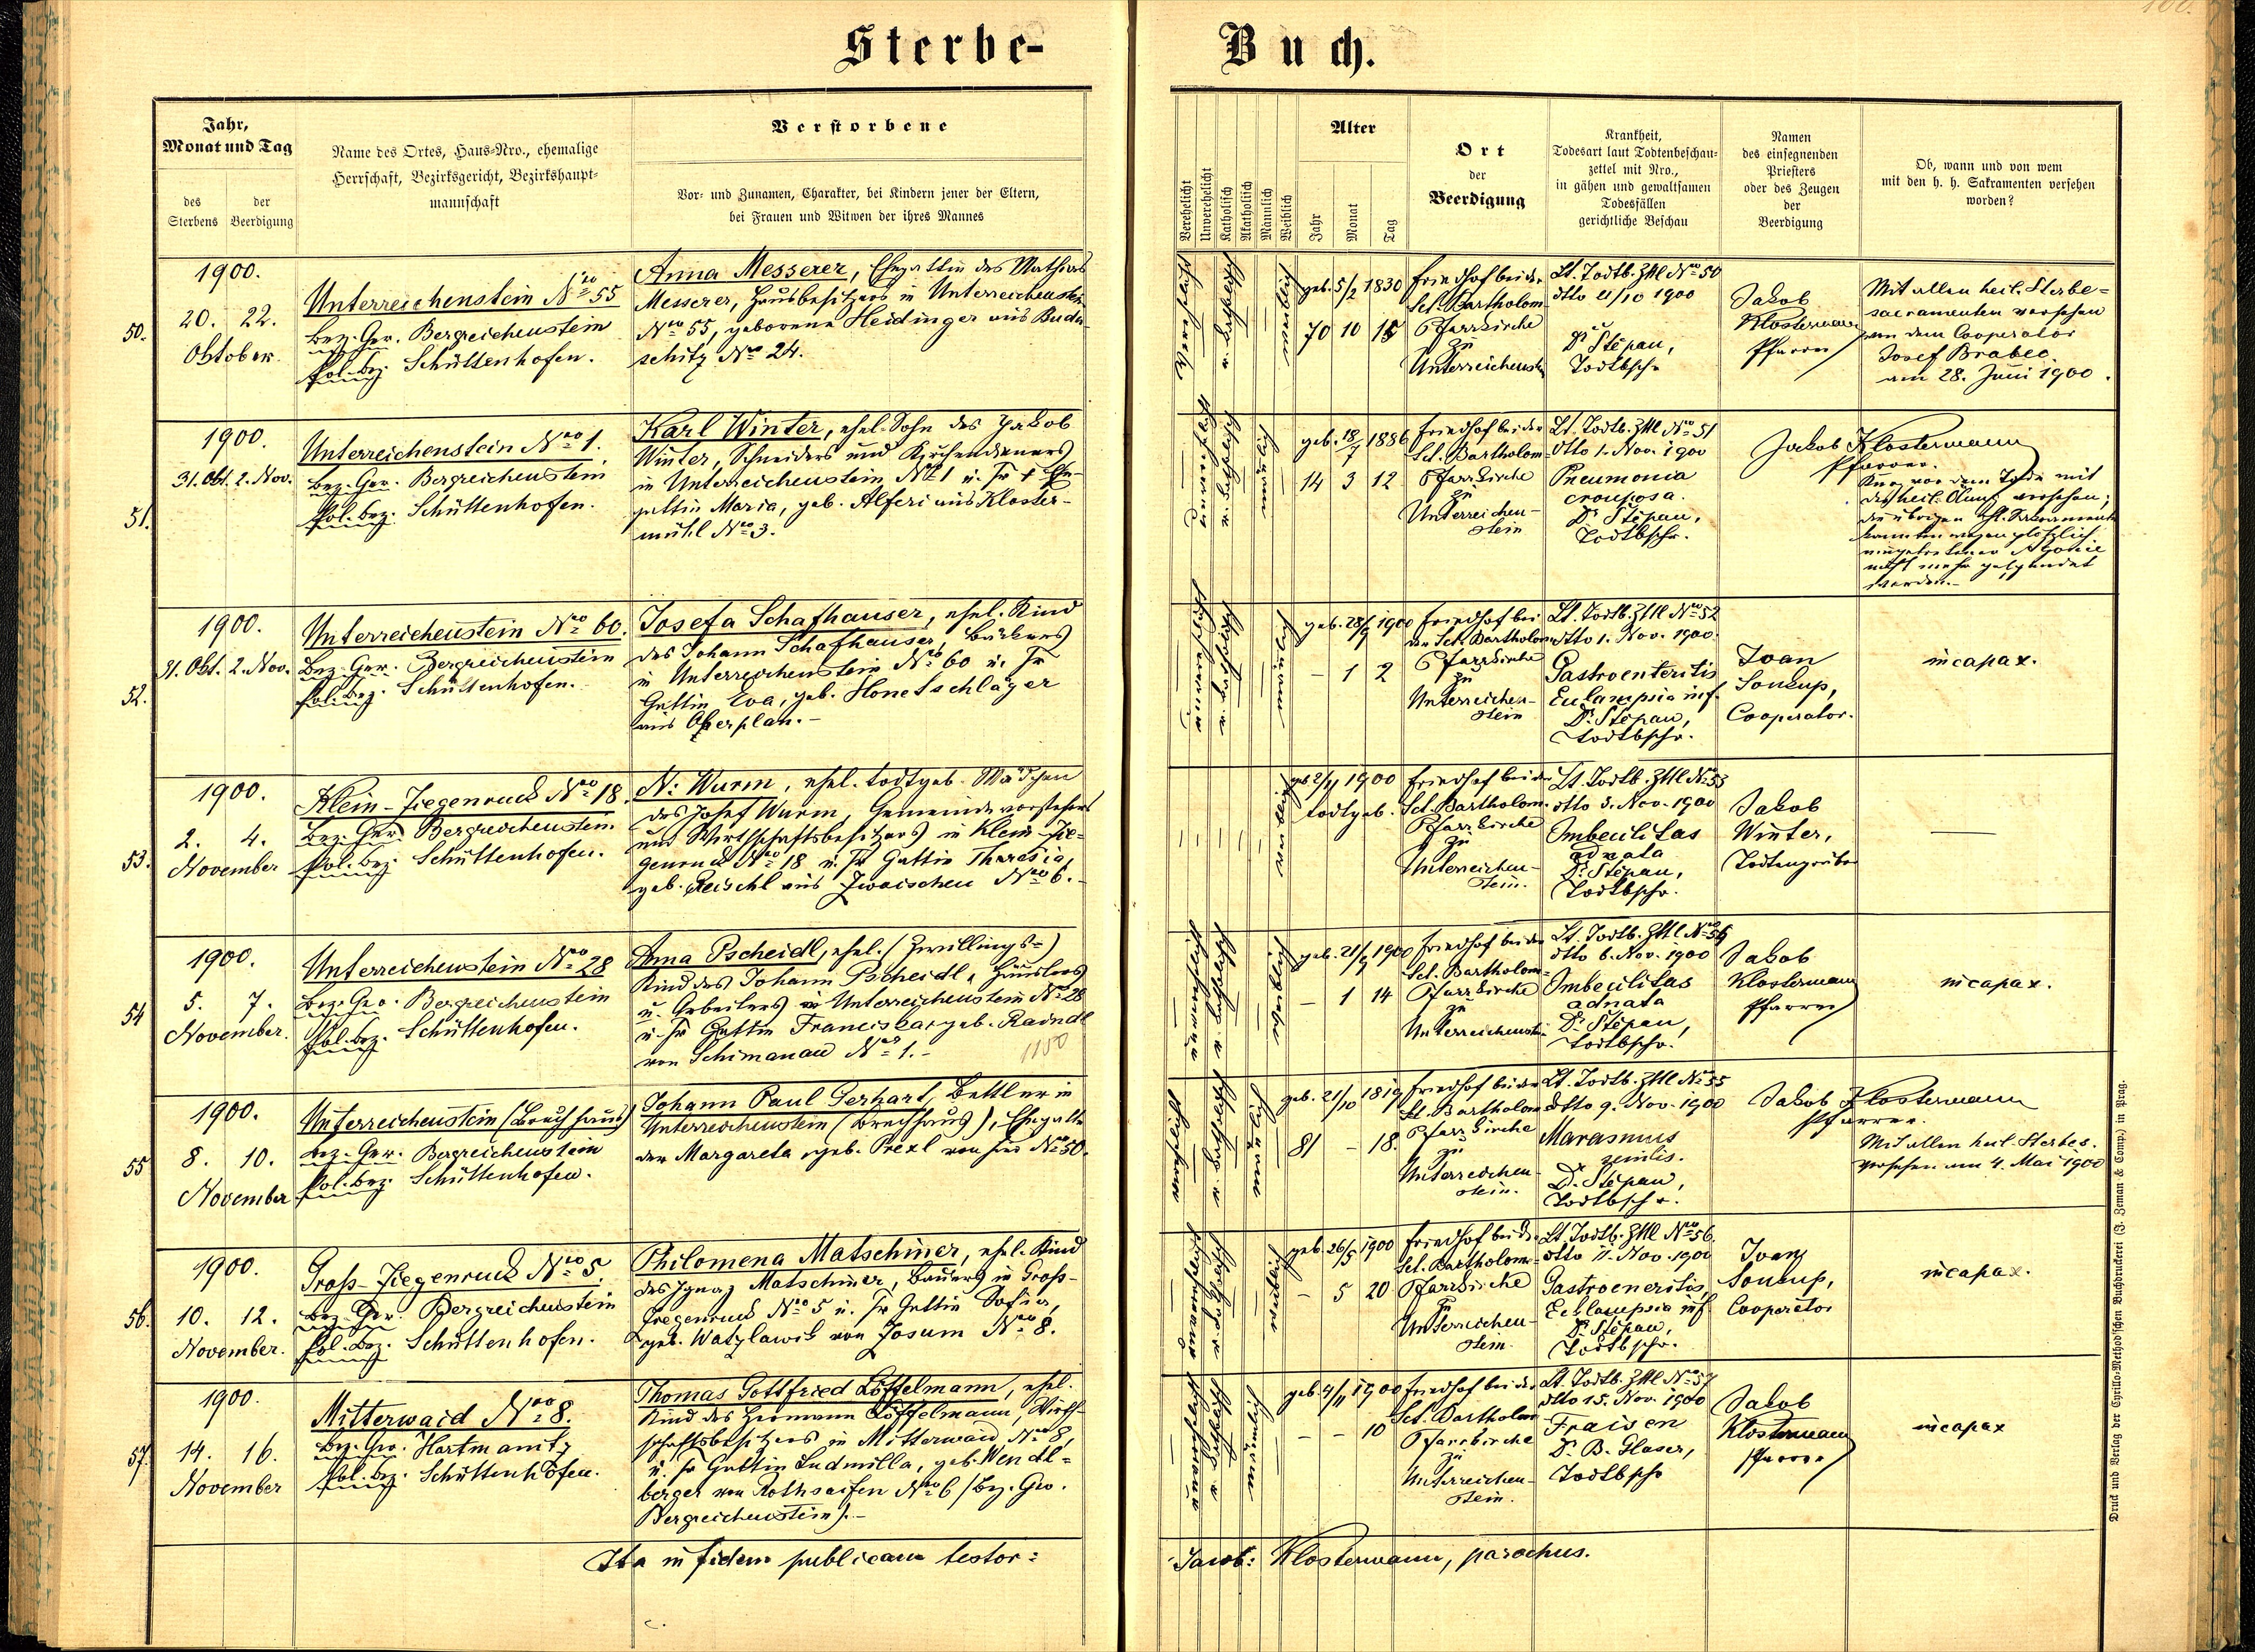 100.
Sterbe-
Buch.
Jahr,
Monat und Tag
des
Sterbens
der
Beerdigung
Name des Ortes, Haus-Nro., ehemalige
Herrschaft, Bezirksgericht, Bezirkshaupt-
mannschaft
Verstorbene
Vor- und Zunamen, Charakter, bei Kindern jener der Eltern,
bei Frauen und Witwen der ihres Mannes
Verehelicht
Unverehelicht
Katholisch
Akatholisch
Männlich
Weiblich
Alter
Jahr
Monat
Tag
Ort
der
Beerdigung
Krankheit,
Todesart laut Todtenbeschau-
zettel mit Nro.,
in gähen und gewaltsamen
Todesfällen
gerichtliche Beschau
Namen
des einsegnenden
Priesters
oder des Zeugen
der
Beerdigung
Ob, wann und von wem
mit den h. h. Sakramenten versehen
worden?
50.
1900.
20. 22.
Oktober.
Unterreichenstein Nro 55
Bez. Ger. Bergreichenstein
Pol. Bez. Schüttenhofen.
Anna Messerer, Ehegattin des Mathias
Messerer, Hausbesitzers in Unterreichenstein
Nro 55, geborene Heidinger aus Buda-
schitz Nro 24.
verehelicht
r. katholisch
weiblich
geb. 5/2 1830
70 10 15
Friedhof bei der
Sct. Bartholom.
Pfarrkirche
zu
Unterreichenstein
Lt. Todtb. Zttl Nro 50
dtto 21/10 1900
Dr Stěpan,
Todtbschr
Jakob
Klostermann
Pfarrer
Mit allen heil. Sterbe=
sacramenten versehen
von dem Cooperator
Josef Brabec
am 28. Juni 1900.
51.
1900.
31. Okt. 2. Nov.
Unterreichenstein Nro 1.
Bez. Ger. Bergreichenstein
Pol. Bez. Schüttenhofen.
Karl Winter, ehel. Sohn des Jakob
Winter, Schneiders und Kirchendieners
in Unterreichenstein Nro 1 u. Fr † Ehe-
gattin Maria, geb. Alferi aus Kloster-
mühl Nro 3.
unverehelicht
r. katholisch
männlich
geb. 18/7 1886
14 3 12
Friedhof bei der
Sct. Bartholom
Pfarrkirche
zu
Unterreichen-
stein
Lt. Todtb. Zttl Nro 51
dtto 1. Nov. 1900
Pneumonia
crouposa.
Dr Stěpan,
Todtbschr.
Jakob Klostermann
Pfarrer.
Kurz vor dem Tode mit
der heil. Ölung versehen;
die übrigen hl. Sacramente
konnten wegen plötzlich
eingetretener Agonie
nicht mehr gespendet
werden.-
52.
1900.
31. Okt. 2. Nov.
Unterreichenstein Nro 60.
Bez. Ger. Bergreichenstein
Pol. Bez. Schüttenhofen.
Josefa Schafhauser, ehel. Kind
des Johann Schafhauser, Bäckers
in Unterreichenstein Nro 60 u. Fr
Gattin Eva, geb. Honetschläger
aus Oberplan.-
geb. 28/9 1900
– 1 2
Friedhof bei
der Sct. Bartholom
Pfarrkirche
zu
Unterreichen-
stein
Lt. Todtb. Zttl Nro 52
dtto 1. Nov. 1900.
Gastroenteritis
Eclampsia inf.
Dr Stěpan,
Todtbschr.
Joan
Soukup,
Cooperator.
incapax.
53.
1900.
2. 4.
November
Klein-Ziegenruck Nro 18.
Bez. Ger. Bergreichenstein
Pol. Bez. Schüttenhofen.
N. Wurm, ehel. todtgeb. Mädchen
des Josef Wurm, Gemeindevorstehers
und Wirthschaftsbesitzers in Klein-Zie-
genruck Nro 18 u. Fr Gattin Theresia,
geb. Reischl aus Zwoischen Nro 6.-
weiblich
geb 2/11 1900
todtgeb.
Friedhof bei der
Sct. Bartholom.
Pfarrkirche
zu
Unterreichen-
stein.
Lt. Todtb. Zttl Nro 53
dtto 3. Nov. 1900
Imbecilitas
adnata
Dr Stěpan,
Todtbschr.
Jakob
Winter,
Todtengräber
—
54
1900.
5. 7.
November.
Unterreichenstein Nro 28
Bez. Ger. Bergreichenstein
Pol. Bez. Schüttenhofen.
Anna Pscheidl, ehel. (Zwillings-)
Kind des Johann Pscheidl, Häuslers
u. Arbeiters in Unterreichenstein Nro 28
u. Fr Gattin Francisca, geb. Raindl
von Schimanau Nro 1.-
1150
unverehelicht
r. katholisch
geb. 21/9 1900
– 1 14
Friedhof bei der
Sct. Bartholom=
Pfarrkirche
zu
Unterreichenstein
Lt. Todtb. Zttl Nro 54
dtto 6. Nov. 1900
Imbecilitas
adnata
Dr Stěpan,
Todtbschr.
Jakob
Klostermann
Pfarrer
incapax.
55
1900.
8. 10.
November
Unterreichenstein (Bruchhaus)
Bez. Ger. Bergreichenstein
Pol. Bez. Schüttenhofen.
Johann Paul Gerhart, Bettler in
Unterreichenstein (Bruchhaus), Ehegatte
der Margareta, geb. Prexl von hier Nro 50.
r. katholisch
männlich
geb. 21/10 1819
81 – 18.
Friedhof bei der
Sct. Bartholom
Pfarrkirche
zu
Unterreichen-
stein.
Lt. Todtb. Zttl Nro 55
dtto 9. Nov. 1900
Marasmus
senilis.
Dr. Stěpan,
Todtbschr.
Jakob Klostermann
Pfarrer.
Mit allen heil. Sterbes.
versehen am 4. Mai 1900
56.
1900.
10. 12.
November.
Gross-Ziegenruck Nro 5.
Bez. Ger. Bergreichenstein
Pol. Bez. Schüttenhofen.
Philomena Matschiner, ehel. Kind
des Ignaz Matschiner, Bauers in Gross-
Ziegenruck Nro 5 u. Fr Gattin Sofia,
geb. Watzlawik von Josum Nro 8.
unverehelicht
r. katholisch
weiblich
geb. 26/5 1900
– 5 20
Friedhof bei der
Sct. Bartholom=
Pfarrkirche
zu
Unterreichen-
stein.
Lt. Todtb. Zttl Nro 56.
dtto 11. Nov. 1900
Gastroeneritis,
Ecklampsia inf
Dr Stěpan,
Todtbschr.
Joan
Soukup,
Cooperator
incapax.
57.
1900.
14. 16.
November
Mitterwaid Nro 8.
Bez. Ger. Hartmanitz
Pol. Bez. Schüttenhofen.
Thomas Gottfried Löffelmann, ehel.
Kind des Hermann Löffelmann, Wirth-
schaftsbesitzers in Mitterwaid Nro 8,
u. Fr Gattin Ludmilla, geb. Wendl=
berger von Rothsaifen Nro 6 (Bez. Ger.
Bergreichenstein).-
unverehelicht
r. katholisch
männlich
geb. 4/11 1900
– – 10
Friedhof bei der
Sct. Bartholom
Pfarrkirche
zu
Unterreichen-
stein.
Lt. Todtb. Zttl Nro 57
dtto 15. Nov. 1900
Fraisen
Dr. B. Glaser,
Todtbschr
Jakob
Klostermann
Pfarrer
incapax
Ita in fidem publicam testor:
Jacob: Klostermann, parochus.
Druck und Verlag der Cyrillo-Method'schen Buchdruckerei (J. Zeman & Comp.) in Prag.